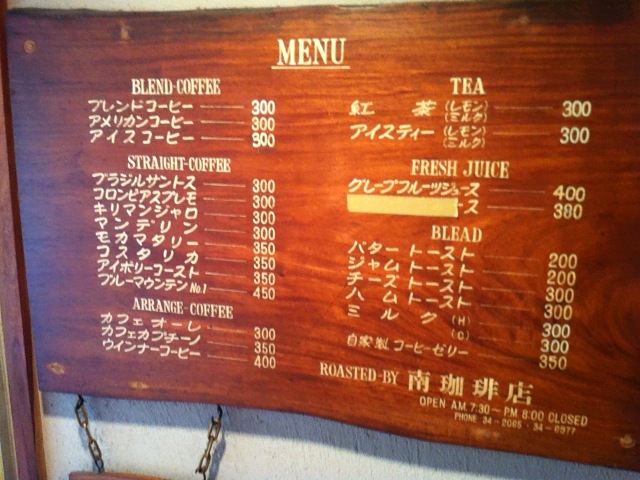 MENU
BLEND-COFFEE
ブレンドコーヒー 300
アメリカンコーヒー 300
アイスコーヒー 300
STRAIGHT-COFFEE
ブラジルサントス 300
コロンビアスプレモ 300
キリマンジャロ 300
マンデリン 300
モカマタリー 350
コスタリカ 350
アイボリーコースト 350
ブルーマウンテンNo.1 450
ARRANGE-COFFEE
カフェオーレ 300
カフェカプチーノ 350
ウインナーコーヒー 400
TEA
紅茶(レモン)(ミルク) 300
アイスティー(レモン)(ミルク) 300
FRESH JUICE
グレープフルーツジュース 400
ース 380
BLEAD
バタートースト 200
ジャムトースト 200
チーズトースト 300
ハムトースト 300
ミルク (H) 300
(C) 300
自家製コーヒーゼリー 350
ROASTED-BY 南珈琲店
OPEN A.M. 7:30~P.M. 8:00 CLOSED
PHONE 34-2065・34-6977